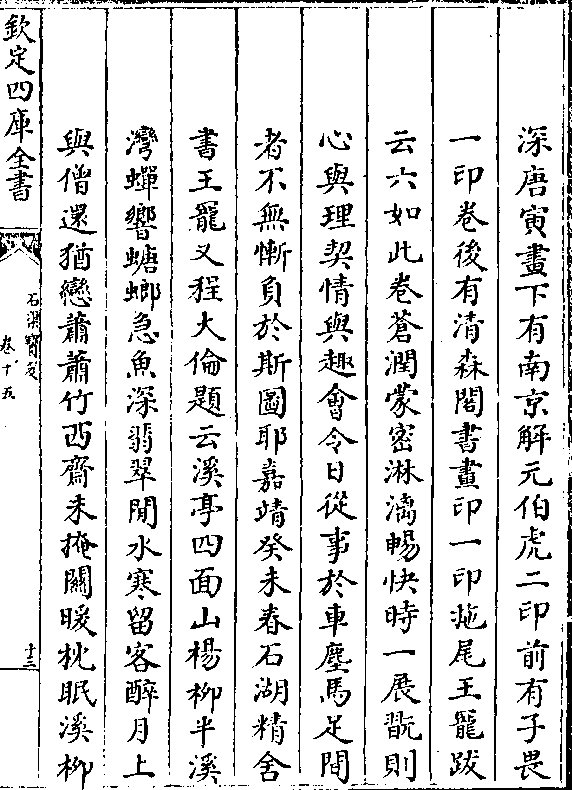 深唐寅畫下有南京解元伯虎二印前有子畏
一印卷後有清森閣書畫印一印拖尾王寵跋
云六如此卷蒼潤蒙密淋漓暢快時一展翫則
心與理契情與趣會令日從事於車塵馬足間
者不無慚負於斯圖耶嘉靖癸未春石湖精舍
書王寵又程大倫題云溪亭四面山楊柳半溪
灣蟬響螗螂急魚深翡翠閒水寒留客醉月上
與僧還猶戀蕭蕭竹西齋未掩關暖枕眠溪柳
欽定四庫全書
石渠寶笈
卷十五
十三